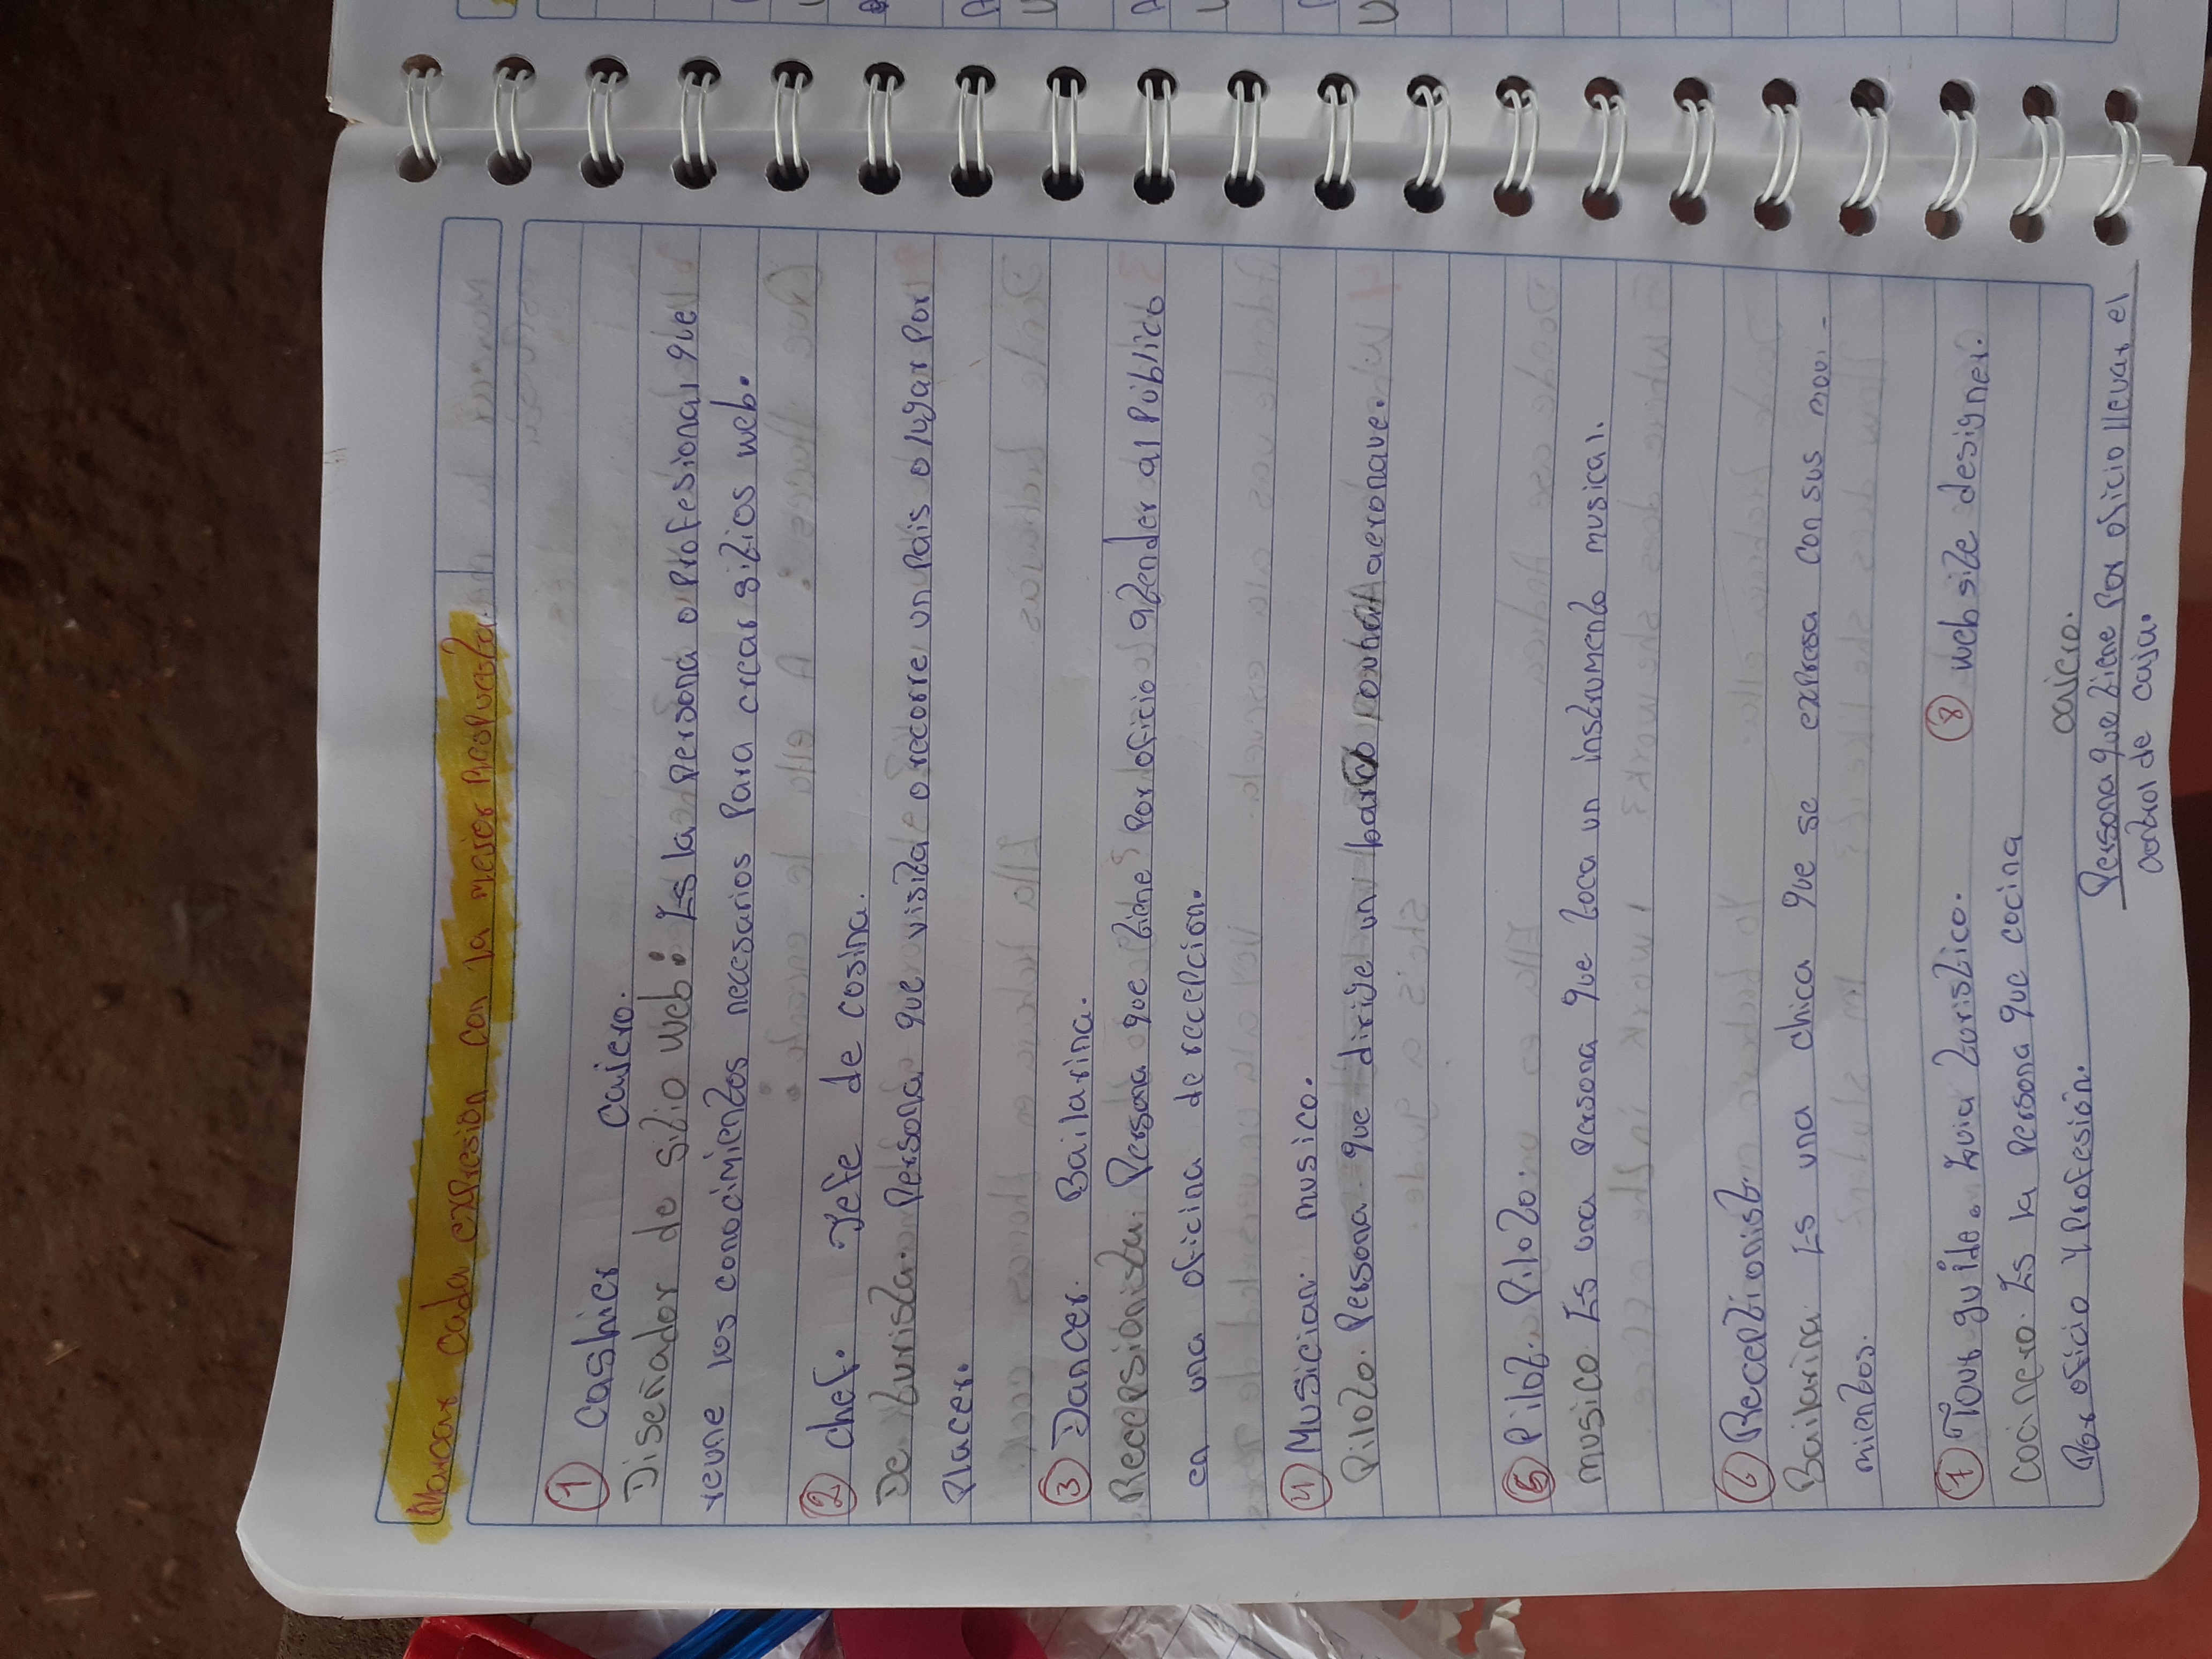 Marcar cada expresion con la mejor Respuesta.
① cashier cajero.
Diseñador de sitio web: Es la persona o Profesional que
reune los conocimientos necesarios Para crear sitios web.
② chef. Jefe de cosina.
De turista. Persona que visita o recorre un Pais o lugar Por
Placer.
③ Dancer. Bailarina.
Recepsionista. Persona que tiene Por oficio atender al Publico
en una oficina de recepcion.
④ Musician. musico.
Piloto. Persona que dirige un barco aeronave.
⑤ Pilot. Piloto.
musico. Es una persona que toca un instrumento musical.
⑥ Receptionist.
Bailarina. Es una chica que se expresa con sus movi-
mientos.
⑦ Tour guide. Guia turistico. ⑧ web site designer.
cocinero. Es la Persona que cocina
Por oficio y Profesión.
cajero.
Persona que tiene Por oficio llevar el
control de caja.